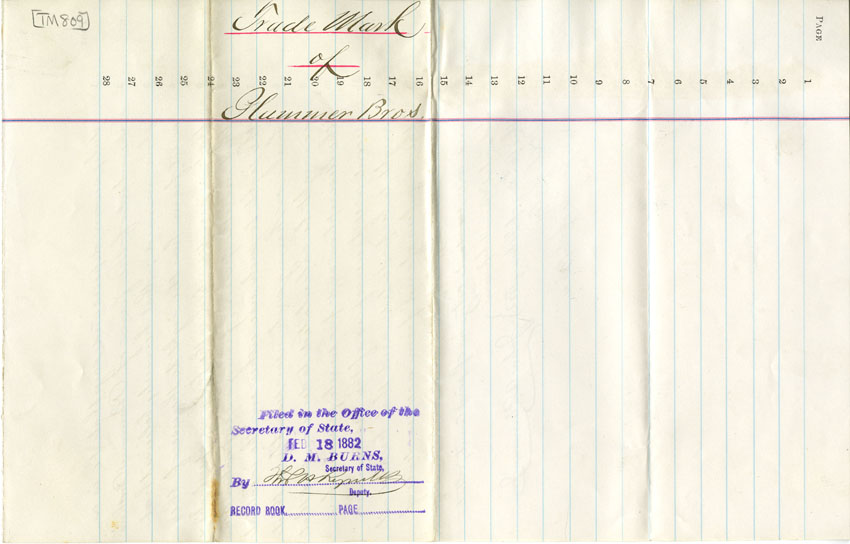 [TM809]
Trade Mark
of
Plummer Bros.
PAGE
1
2
3
4
5
6
7
8
9
10
11
12
13
14
15
16
17
18
19
20
21
22
23
24
25
26
27
28
Filed in the Office of the
Secretary of State,
FEB 18 1882
D. M. BURNS,
Secretary of State,
By
Deputy.
RECORD BOOK PAGE